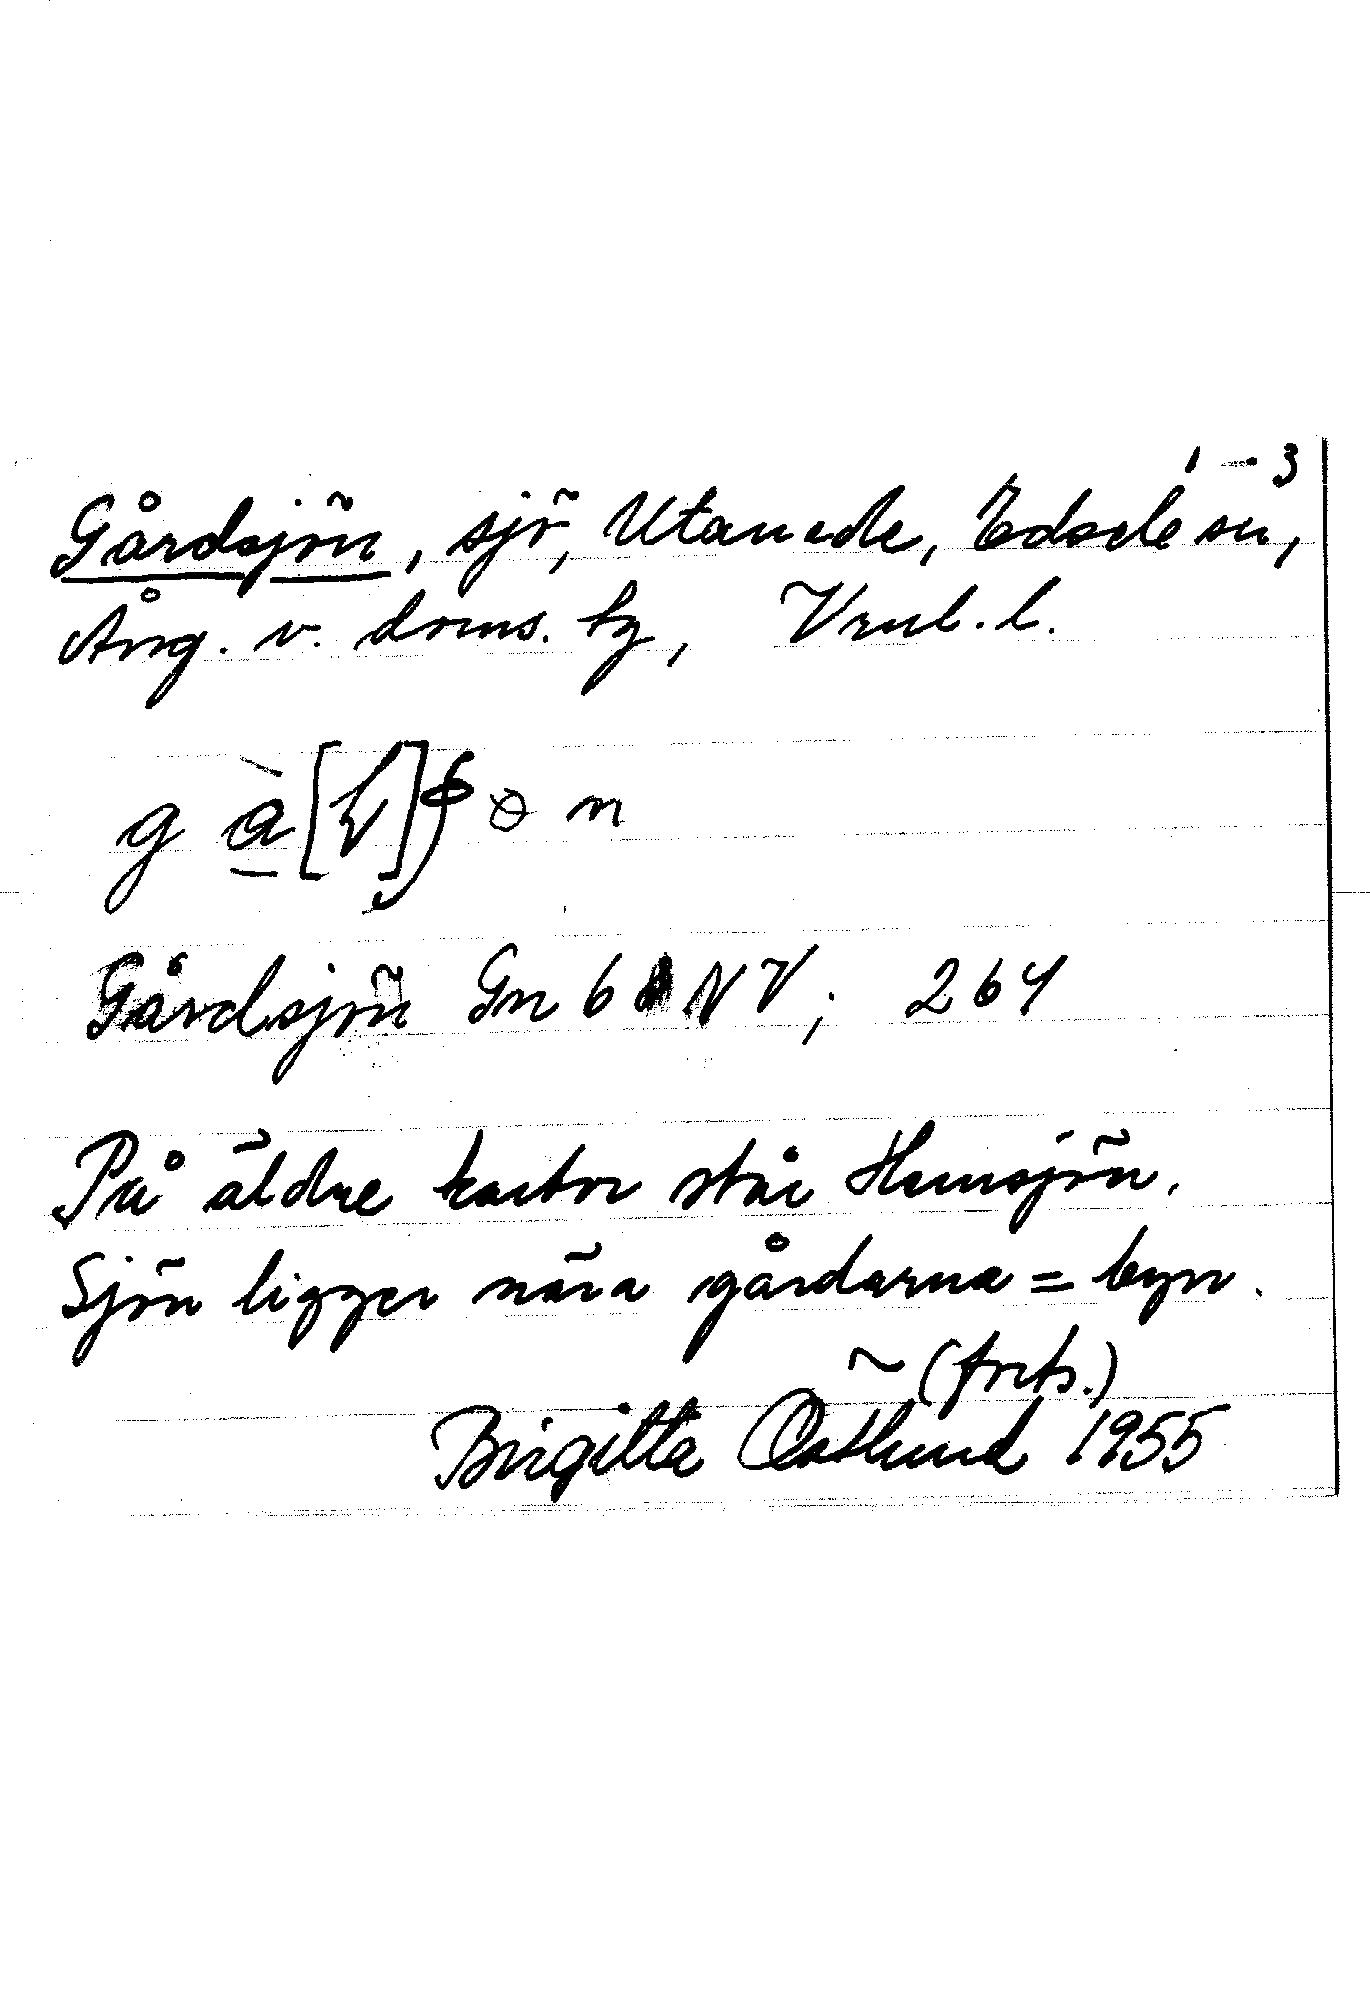 1 – 3
Gårdsjön, sjö, Utanede, Edsele sn,
Ång. v. doms. tg, Vrnl. l.
Gårdsjön Gn 6 NV; 264
På äldre kartor står Hemsjön.
Sjön ligger nära gårdarna = byn.
~ (forts.)
Birgitta Östlund 1955